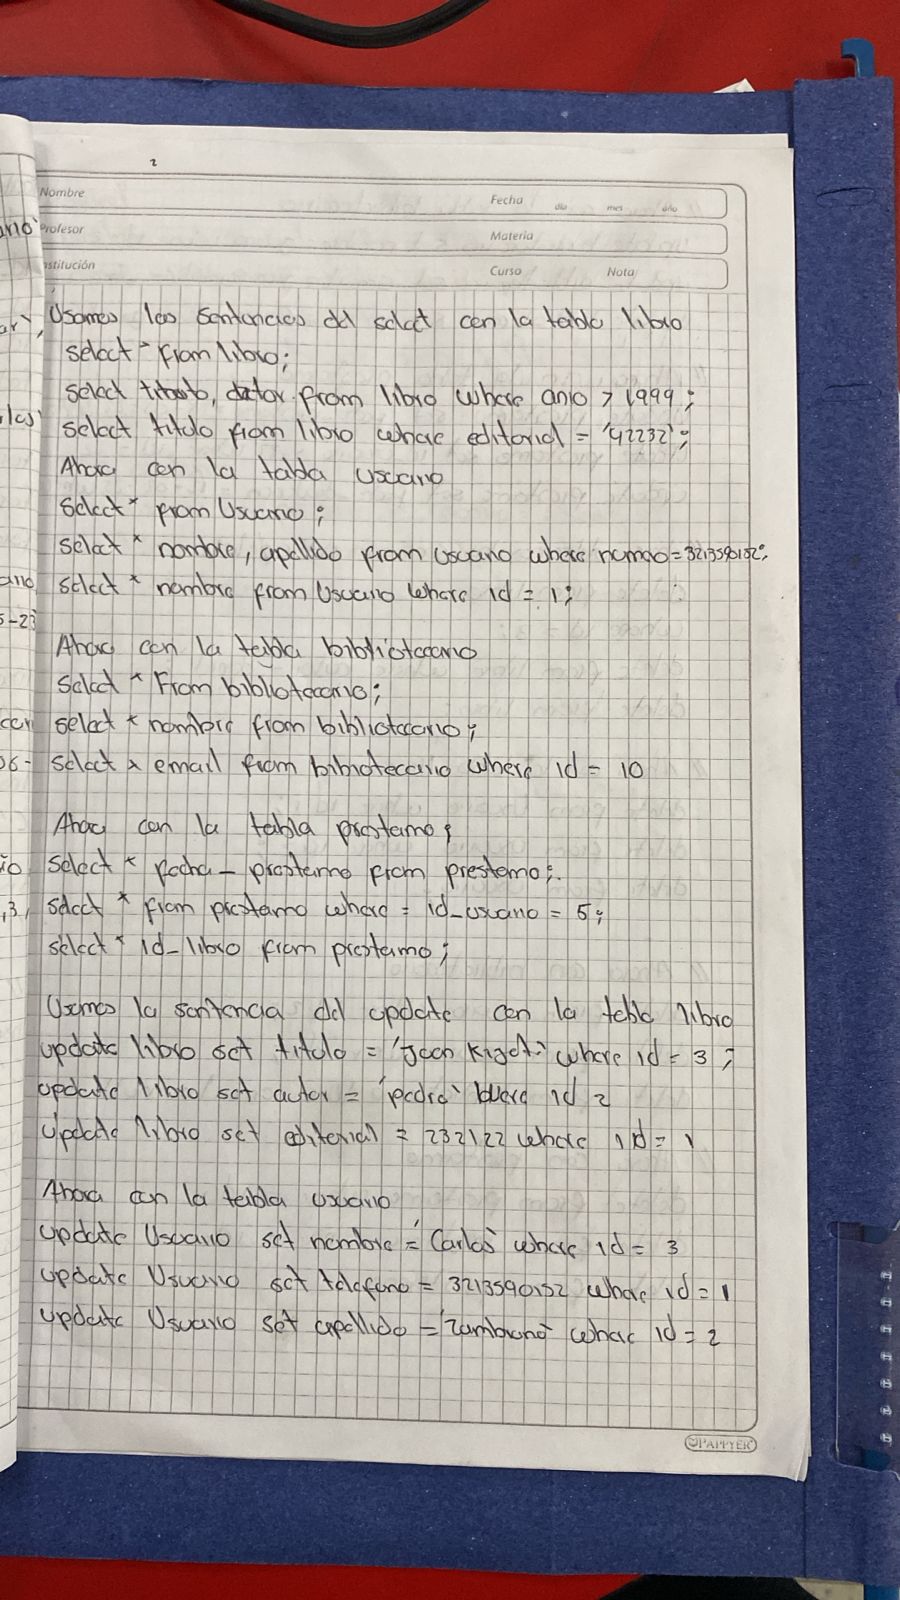 2
Nombre
Fecha día mes año
Profesor
Materia
stitución
Curso Nota
Usamos las sentencias del select con la tabla libro
select * from libro;
select titulo, autor from libro where anio > 1999;
select titulo from libro where editorial = '42232';
Ahora con la tabla usuario
Select * from Usuario;
select * nombre, apellido from usuario where numero = 3213590152;
select * nombre from Usuario where id = 1;
Ahora con la tabla bibliotecario
Select * From bibliotecario;
select * nombre from bibliotecario;
select * email from bibliotecario where id = 10
Ahora con la tabla prestamo;
select * fecha_prestamo from prestamo;
select * from prestamo where = id_usuario = 5;
select * id_libro from prestamo;
Usamos la sentencia del update con la tabla libro
update libro set titulo = 'Joan where id = 3;
update libro set autor = 'pedro' where id 2
update libro set editorial = 232122 where id = 1
Ahora con la tabla usuario
update Usuario set nombre = 'Carlos' where id = 3
update Usuario set telefono = 3213590152 where id = 1
update Usuario set apellido = 'Zambrano' where id = 2
PAPPYER